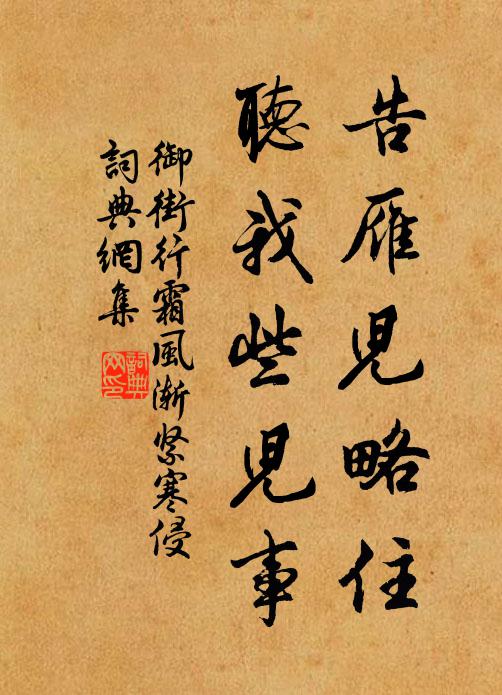 告雁兒略住
聽我些兒事
御街行霜風漸緊寒侵
詞典網集
詞典
網印